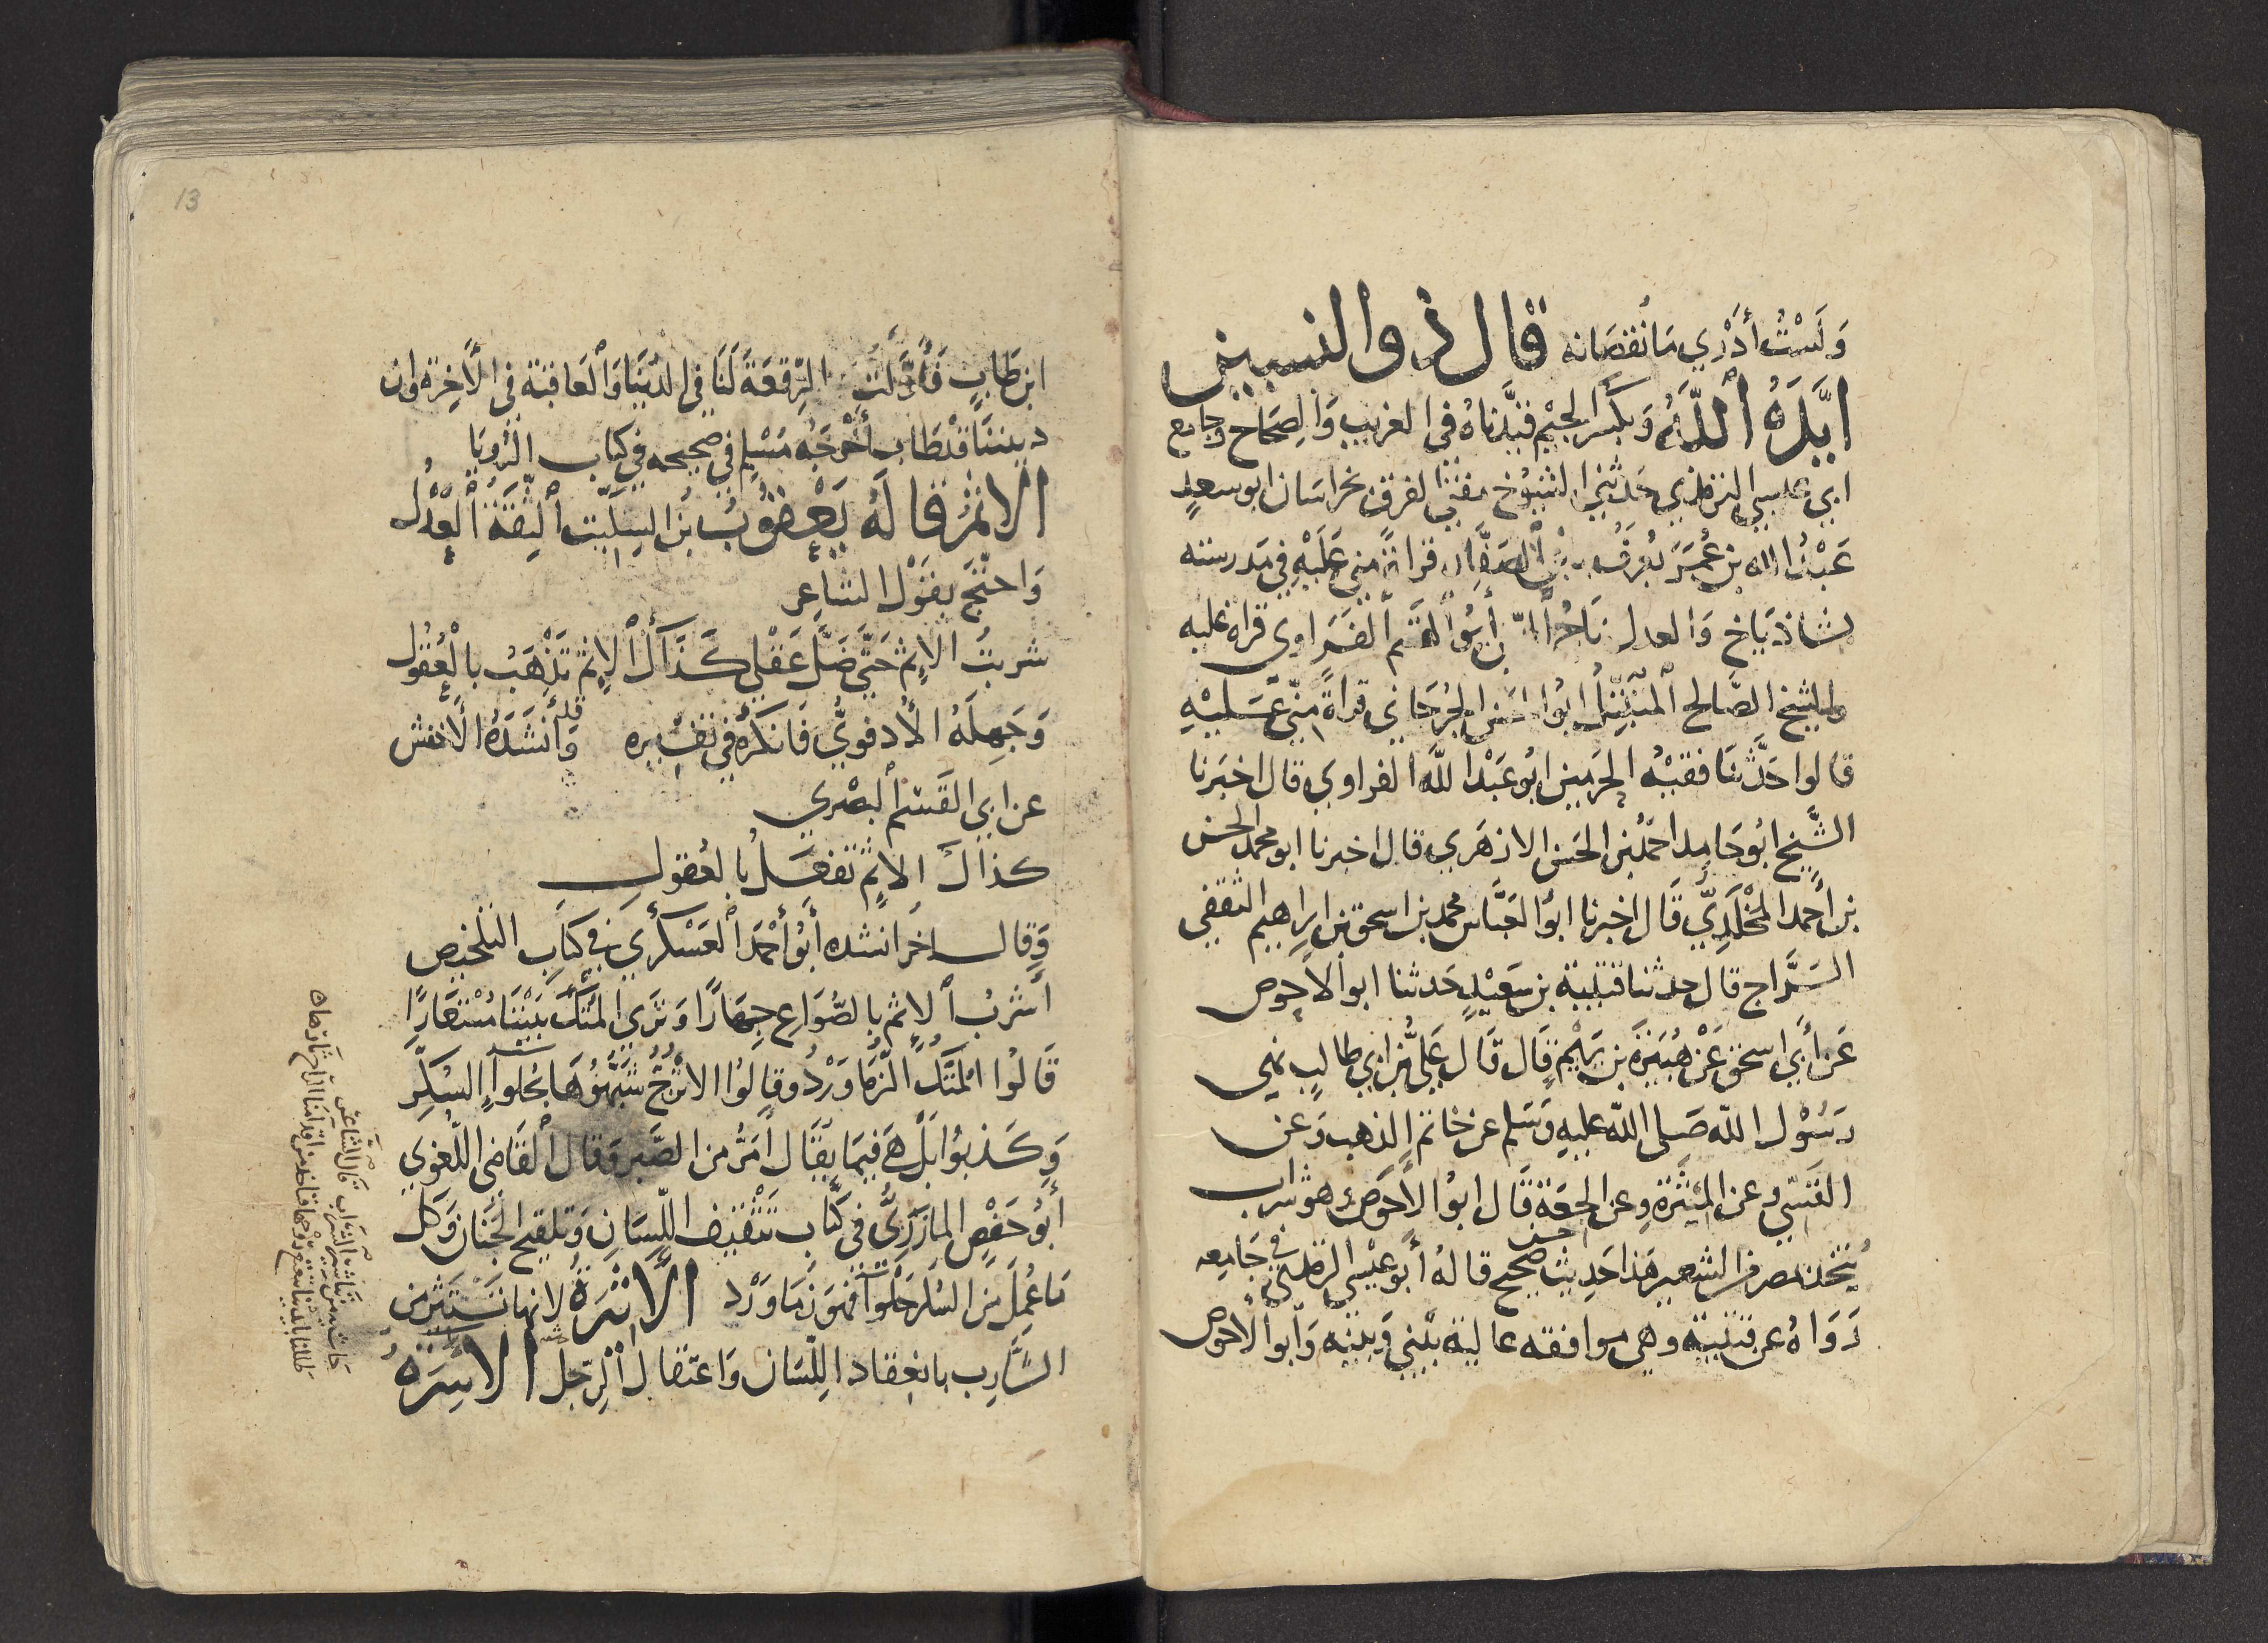 وَلَسْتُ أدْرِي مَا نُقصَانه قال ذوالنسبين
ايَّدَهُ ٱللَّهُ وَبكَسر الجيْم قيَّدناهُ في الغريب وَالصَحَاح وَجَامع
ابي عيسى الترمذي حَدثني الشيُوخ مفتي الفرق بخراسَان ابو سعدٍ
عَبْدُ الله بن عُمَرَ يُعرَفُ بابن ٱلصَفَّار قراةً مني عَلَيْهِ في مَدرسته
بشاذيَاخ وَالعدل تاج ابُو القسم الفَرَاوي قراه عليه
والشيخ الصَّالح ابُوا الجُرجَاني قراةً منّي عَليْهِ
قالوا حَدَّثنَا فقيْهُ الحَرَمين ابُوعَبْد اللَّه الفراوي قال اخبَرنا
الشَّيخ ابُوحَامد احمدُ بن الحَسَن الازهَري قال اخبرنا ابو محمد الحسن
بن أحمد المَخْلَدِيّ قَال اخبرنا ابوُ العَبَّاس محمد بن اسحق بن ابراهيم الثقفي
السَرَّاج قال حدثنا قتيبة بن سَعيْدٍ حَدثنا ابو الاحوص
عَن أبي اسحق عَنْ هُبَيْرَة بن يَرِيْمَ قال قَال عَليُّ بن ابي طالبٍ نهى
رَسُوْل اللّه صَلى اللّه عليهِ وَسَلم عن خاتم الذهب وَعن
القَسّي وعن المِيْثَرَة وعن الجعَة قَال ابوُ الأحَوص هو شراب
يُتخذ بمصر من الشعير هَذا حَديث حسن صَحيح قالهُ أبوُ عيْسَى الترمذي في جَامعه
رَوَاهُ عن قتيبة وهي موافقه عالية بيْني وَبينه وَابو الاحوص
13
ابن طَابٍ فَأوَّلتُ الرِّفعَةَ لَنَا في الدُنيَا وَٱلعَاقبَة في الأخِرة وان
ديننَا قد طَاب أخْرَجَهُ مُسْلِم في صحيحه في كتاب الرُؤيَا
الاثمُ قالهُ يَعْقوُبُ بن السِكيّت ٱلثِقةُ ٱلعَدْل
وَاحتَّج بقوْل الشاعِر
شربتُ الإثمَ حَتَّى ضَلَّ عَقْلي كَذَاكَ ٱلإثمُ تَذْهَبُ بالعُقوُل
وَجَهلَهُ الأدفويُّ فَانكَرَهُ في تفسِيره وَأنشَدَهُ الأخفش
عن ابي القسم ٱلبصْري
كذاكَ الإثمُ تفعَلُ بالعُقولِ
وَقال اخر انشده أبُو أحْمَدَ ٱلعَسْكري في كتاب التلخيص
أشربُ ٱلاثم بالصُّوَاع جهَارًا وَتَرَى المتْكَ بَيْننَا مُسْتعَارًا
قَالوُا المُتكُ الزُمَاوَرْدُ وقالوُا الاتْرُجُّ شَبَّهُوُهَا بحُلواءِ السُكَّرِ
وَكَذبوُا بَل هيَ فيمَا يقَالُ أمَرُّ من الصَّبر وَقال ٱلقَاضى اللّغوي
أبُوُ حَفْصٍ المازَرِيُّ في كتَاب تَثْقيف اللّسَان وَتلقيح الجَنان وَكل
مَا عُمِلَ منَ السُكَّر حَلْوَآءَ فهُوَ زمَاوَرْد الأسرَةُ لانها تَسْتَأثر من
الشَّارِب بانعِقاد اللّسَان وَاعتقال ٱلرّجل الأسِرَةُ